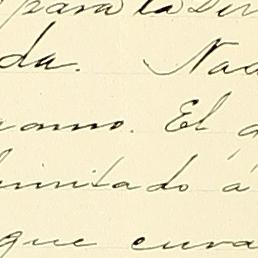 para la Dir
da. Nad
anno. El
limitado á
que cura